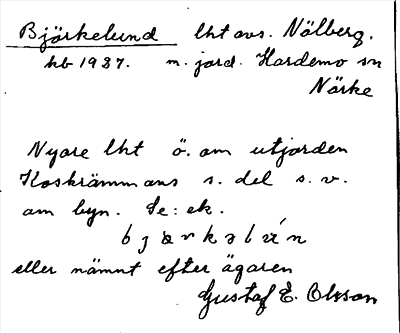 Björkelund lht avs. Nölberg.
hb 1937. m. jord. Hardemo sn
Närke
Nyare lht ö. om utjorden
Koskrämmans s. del s. v.
om byn. Se: ek.
bjœrkəlɯ́n
eller nämnt efter ägaren
Gustaf E. Olsson